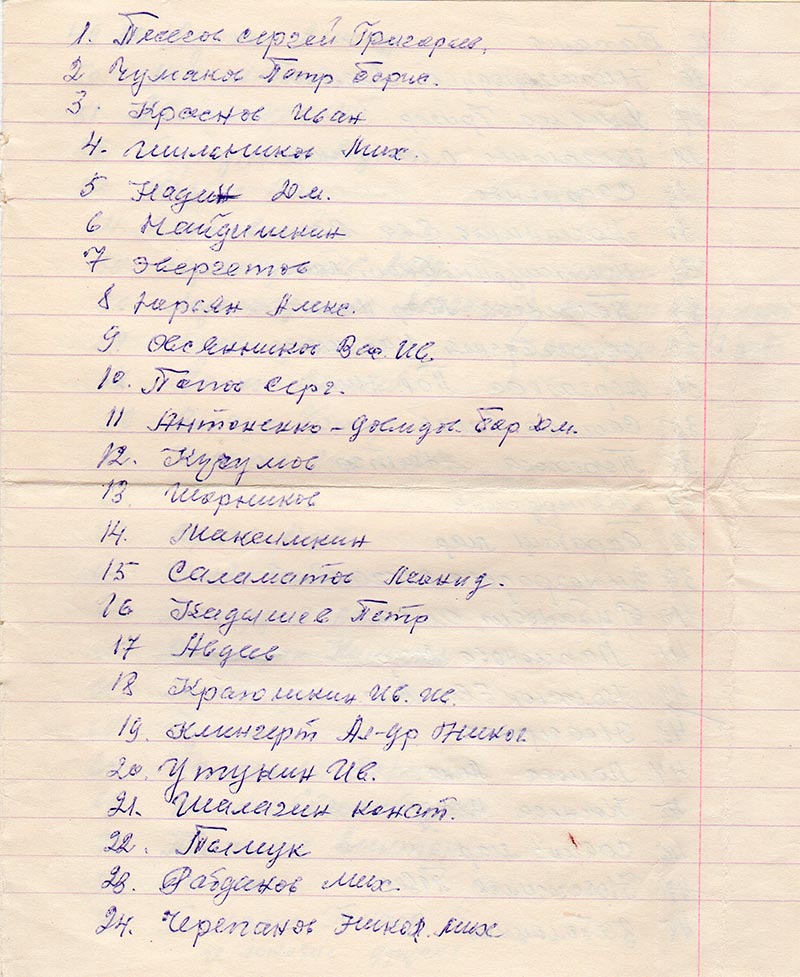 1. Пегов Сергей Григорьев.
2 Чумаков Петр Борис.
3. Краснов Иван
4. Шиляников Мих.
5 Кадин Дм.
6 Найдишкин
7 Эвергетов
8 Нарсян Алекс.
9. Овсянников Вас. Ив.
10. Попов Серг.
11 Антоненко-Довидов. Бор Дм.
12. Кугумов
13 Шорников
14. Максимкин
15 Саламатов Леонид.
16 Кадышев Петр
17 Авдеев
18 Кратюшкин Ив. Ив.
19. Клингерт Ал-др Никол
20. Утукин Ив.
21. Шалагин Конст.
22. Полищук
23. Рабданов Мих.
24. Черепанов Никол. Мих